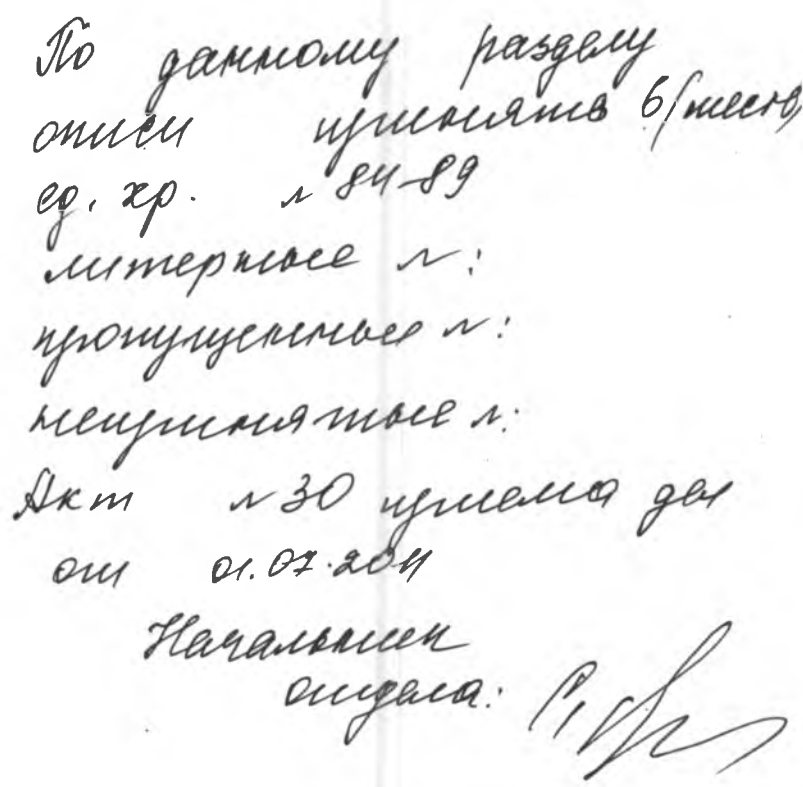 По данному разделу
описи принято 6 (шесть)
ед. хр. № 84-89
литерные №:
пропущенные №:
непринятые №:
Акт № 30 приема дел
от 01.07.2011
Начальник
отдела: